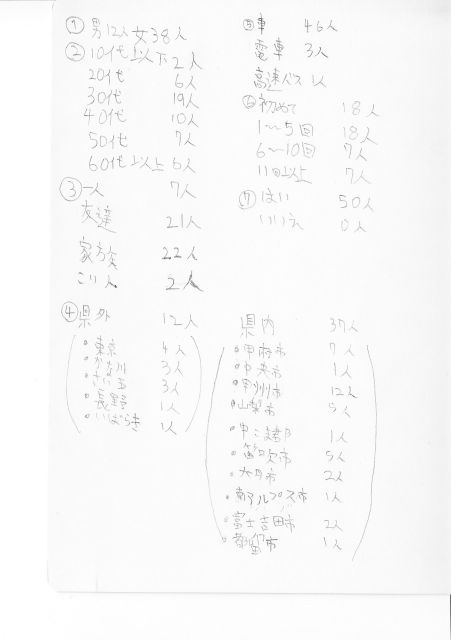 ① 男12人 女38人
② 10代以下 2人
20代 6人
30代 19人
40代 10人
50代 7人
60代以上 6人
③ 一人 7人
友達 21人
家族 22人
こい人 2人
④ 県外 12人
・東京 4人
・かな川 3人
・さい玉 3人
・長野 1人
・いばらき 1人
⑤ 車 46人
電車 3人
高速バス 1人
⑥ 初めて 18人
1〜5回 18人
6〜10回 7人
11回以上 7人
⑦ はい 50人
いいえ 0人
県内 37人
・甲府市 7人
・中央市 1人
・甲州市 12人
・山梨市 5人
・中こま郡 1人
・笛吹市 5人
・大月市 2人
・南アルプス市 1人
・富士吉田市 2人
・都留市 1人